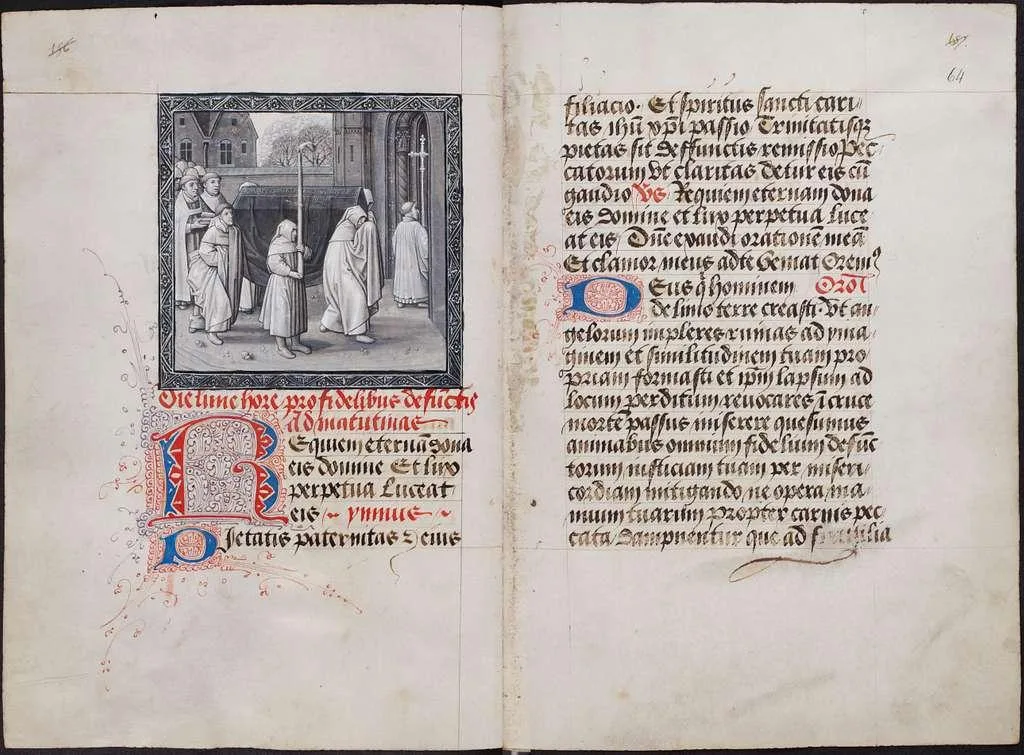 64
Die lune hore pro fidelibus defunctis
ad matutinas
Requiem eternam dona
eis domine Et lux
perpetua Luceat
eis ympnus
Pietatis paternitas Genis
filiacio. Et spiritus sancti cari
tas ihu xpi passio Trinitatisqz
pietas sit deffunctis remissio Pec
catorum Vt claritas detur eis cu
gaudio Vs Requiem eternam dona
eis domine et lux perpetua luce
at eis Dne exaudi orationem mea
Et clamor meus ad te veniat Orem9
Deus q hominem Oro
de limo terre creasti. Vt an
gelorum impleres ruinas ad yma
ginem et similitudinem tuam pro
priam formasti et ipm lapsum ad
locum perditum revocares i cruce
morte passus miserere quesumus
animabus omnium fidelium defuc
torum iusticiam tuam per miseri
cordiam mitigando ne opera ma
nuum tuarum propter carnis pec
cata dampnentur que ad